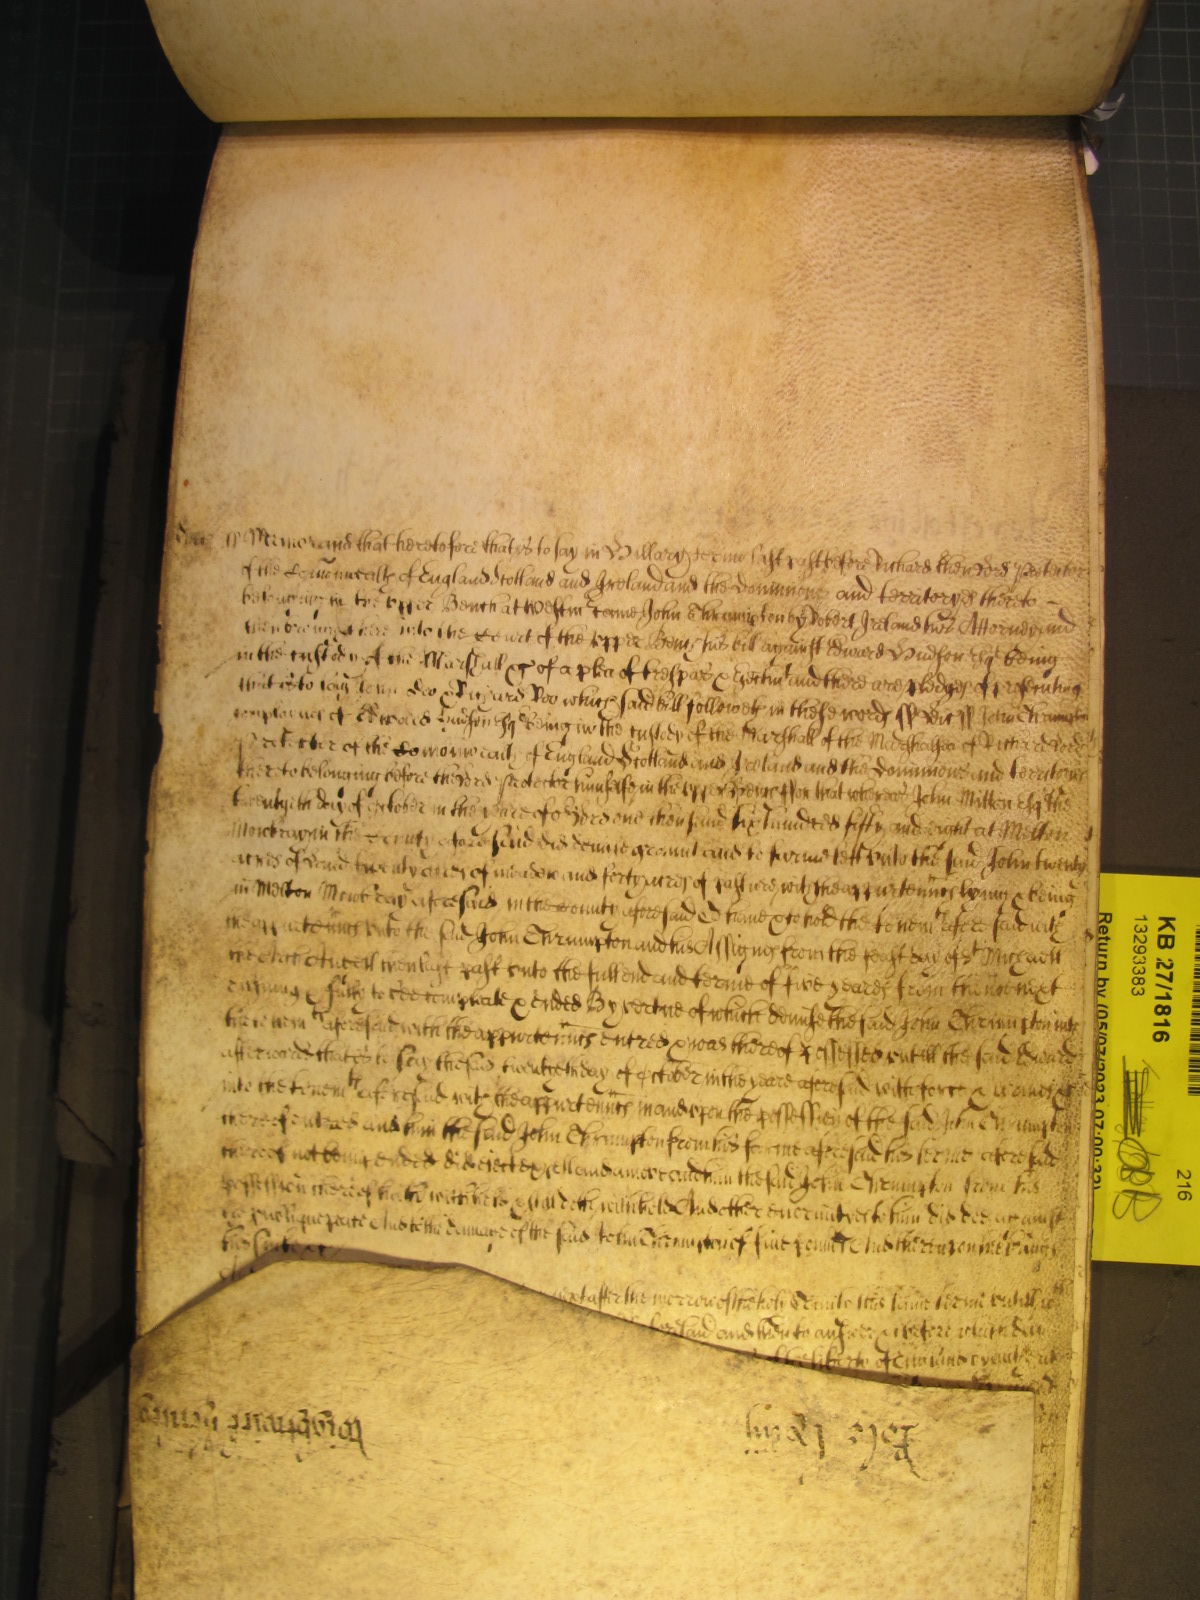 Memorand that heretofore that is to say in Hillary terme last past before Richard then Lord Protector
of the Comonwealth of England Scotland and Ireland and the Dominions and territoryes thereto
belonging in the upper Bench at Westm came John Thrumpton by Robert Ireland his Attorney and
then brought here into the Court of the upper Bench his bill against Edward Hudson Esq being
in the custody of the Marshall &c of a plea of trespas & Ejectmt and there are pledges of prosecuting
that is to say John Doo & Richard Roo which said bill followeth in these words ss Leic ss John Thrumpton
complaines of Edward Hudson Esq being in the custody of the Marshall of the Marshalsea of Richard Lord
Protector of the Comonwealth of England Scotland and Ireland and the Dominions and territoryes
thereto belonging before the Lord Protector himselfe in the upper Bench ffor that whereas John Mitton Esq the
twentyth day of October in the yeare of o Lord one thousand six hundred fifty and eight at Melton
Mowbray in the County aforesaid did demise graunt and to farme lett unto the said John twenty
acres of land twenty acres of meadow and forty acres of pasture with thappurtennces lying & being
in Melton Mowbray aforesaid in the County aforesaid To have & to hold the tenemts aforesaid with
thappurtennces unto the said John Thrumpton and his Assignes from the feast day of St Michaell
the Arch Angell then last past unto the full end and terme of five yeares from thence next
ensuing & fully to bee compleate & ended By vertue of which demise the said John Thrumpton into
the tenemts aforesaid with the appurtennces entred & was thereof possessed untill the said Edward
afterwards that is to say the said twentieth day of October in the yeare aforesaid with force & armes &c
into the tenemts aforesaid with the appurtennces in and upon the possession of the said John Thrumpton
thereof entred and him the said John Thrumpton from his farme aforesaid his terme aforesaid
thereof not being ended did eject expell and amove and him the said John Thrumpton from his
possession thereof hath withheld & yet doth withhold And other enormityes to him did doe against
the publique peace And to the damage of the said John Thrumpton of five pounds And thereupon he brings
his suite &c
next after the morrow of the holy Trinity this same terme untill wch
and then to answere &c before which day
the liberty of
KB 27/1816
13293383
216
Return by (05/07/2023 07:00:32)